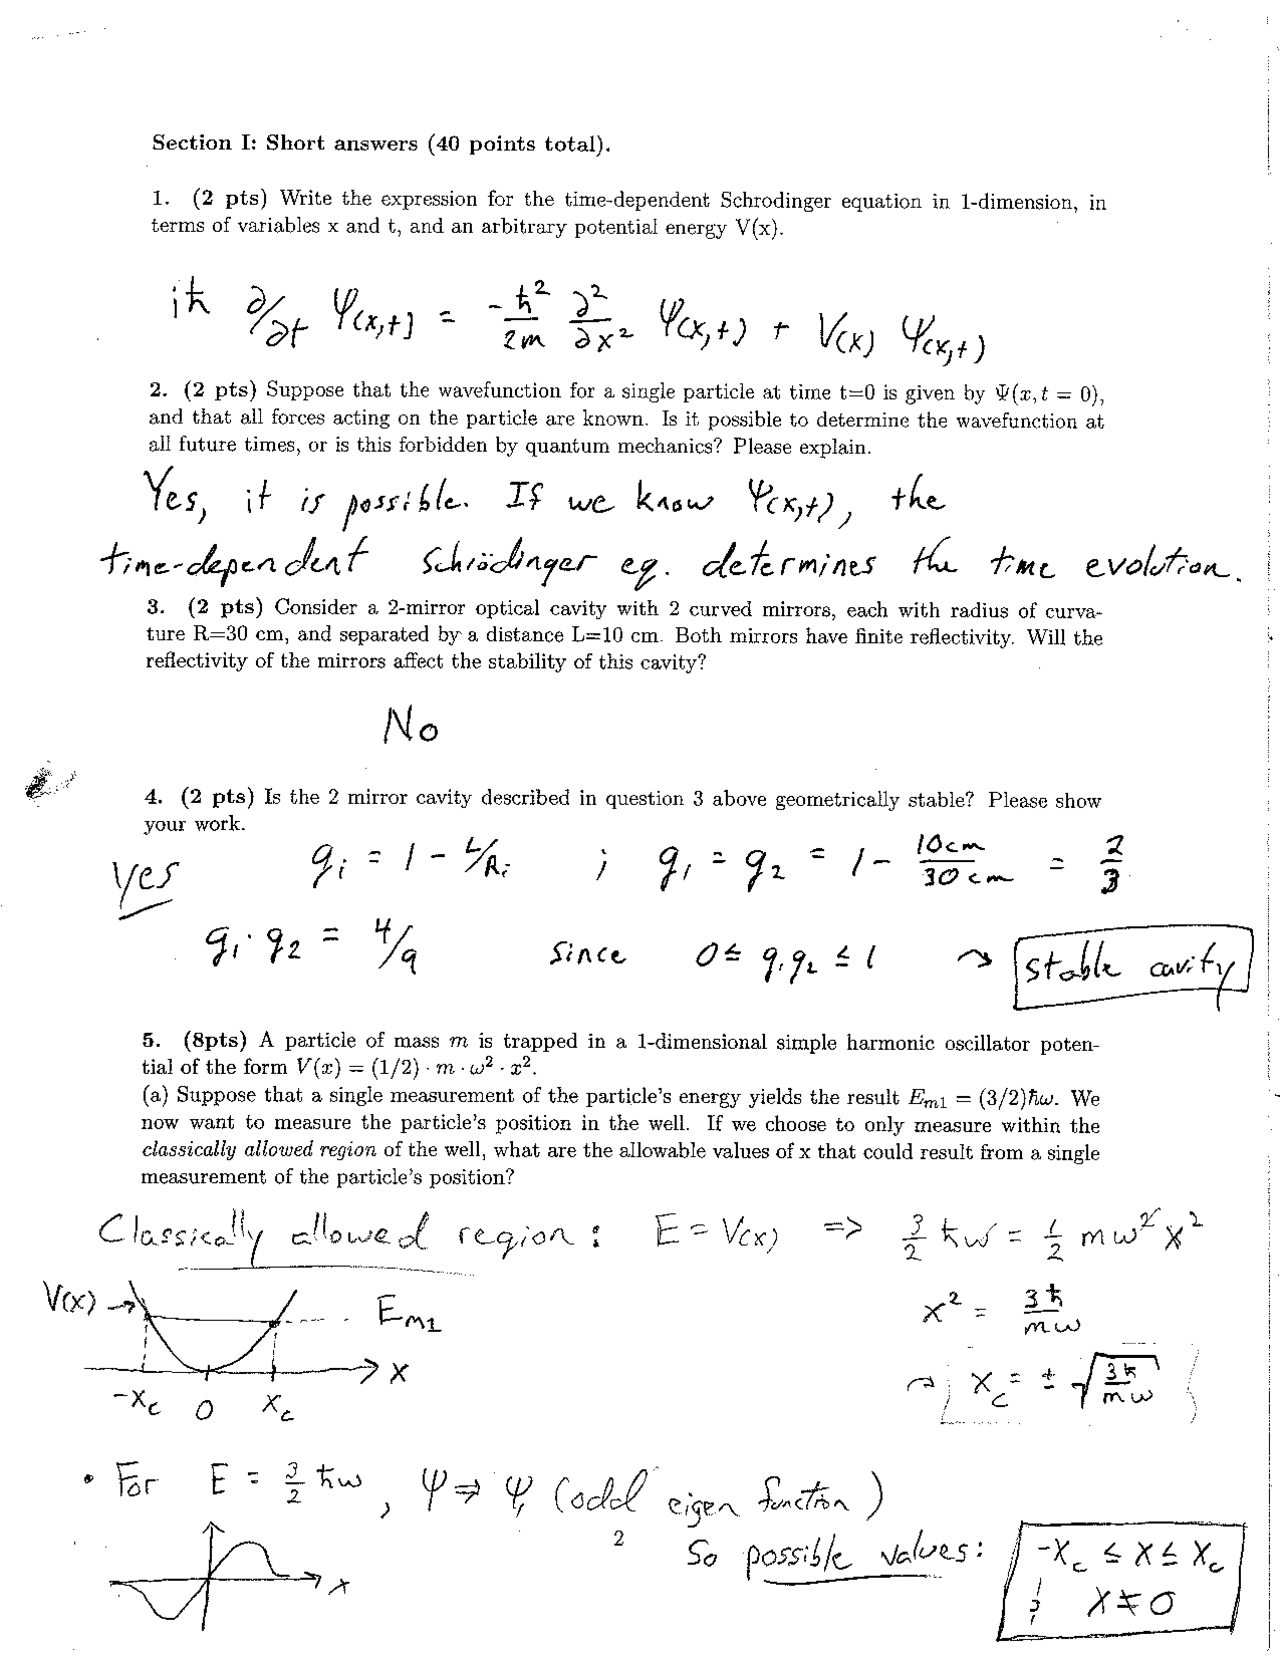 Section I: Short answers (40 points total).
1. (2 pts) Write the expression for the time-dependent Schrodinger equation in 1-dimension, in
terms of variables x and t, and an arbitrary potential energy V(x).
iħ ∂/∂t Ψ(x,t) = -ħ²/2m ∂²/∂x² Ψ(x,t) + V(x) Ψ(x,t)
2. (2 pts) Suppose that the wavefunction for a single particle at time t=0 is given by Ψ(x, t = 0),
and that all forces acting on the particle are known. Is it possible to determine the wavefunction at
all future times, or is this forbidden by quantum mechanics? Please explain.
Yes, it is possible. If we know Ψ(x,t), the
time-dependent Schrödinger eq. determines the time evolution.
3. (2 pts) Consider a 2-mirror optical cavity with 2 curved mirrors, each with radius of curva-
ture R=30 cm, and separated by a distance L=10 cm. Both mirrors have finite reflectivity. Will the
reflectivity of the mirrors affect the stability of this cavity?
No
4. (2 pts) Is the 2 mirror cavity described in question 3 above geometrically stable? Please show
your work.
yes gᵢ = 1 - L/Rᵢ ; g₁ = g₂ = 1 - 10cm/30cm = 2/3
g₁·g₂ = 4/9 since 0 ≤ g₁g₂ ≤ 1 → stable cavity
5. (8pts) A particle of mass m is trapped in a 1-dimensional simple harmonic oscillator poten-
tial of the form V(x) = (1/2) · m · ω² · x².
(a) Suppose that a single measurement of the particle's energy yields the result Eₘ₁ = (3/2)ħω. We
now want to measure the particle's position in the well. If we choose to only measure within the
classically allowed region of the well, what are the allowable values of x that could result from a single
measurement of the particle's position?
Classically allowed region: E = V(x) => 3/2 ħω = 1/2 mω²x²
V(x) → Eₘ₁ x² = 3ħ/mω
x
-x_c 0 x_c → x_c = ± √(3ħ/mω)
• For E = 3/2 ħω, Ψ ⇒ Ψ₁ (odd eigen function)
2
So possible values: -x_c ≤ x ≤ x_c
x & x ≠ 0